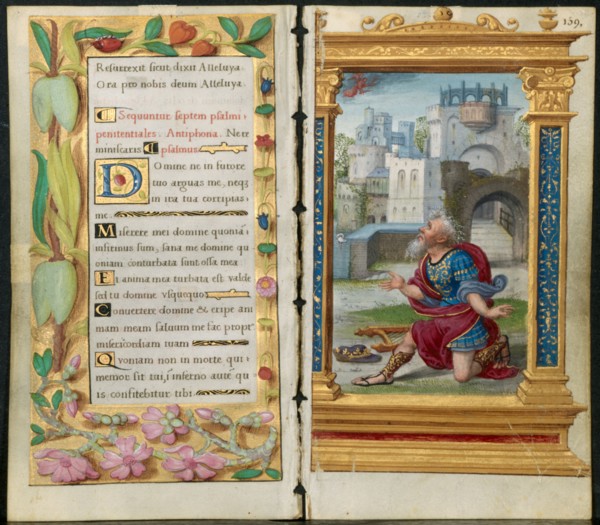 Resurrexit sicut dixit Alleluya
Ora pro nobis deum Alleluya
Sequuntur septem psalmi
penitentiales. Antiphona. Ne re
miniscaris psalmus
Domine ne in furore
tuo arguas me, neqz
in ira tua corripias
me
Miserere mei domine quoniã
infirmus sum, sana me domine qu
oniam conturbata sunt ossa mea
Et anima mea turbata est valde
sed tu domine vsquequo
Conuertere domine & eripe ani
mam meam saluum me fac propt
misericordiam tuam
Quoniam non in morte qui
memor sit tui, ĩ inferno autẽ qu
is confitebitur tibi
159,